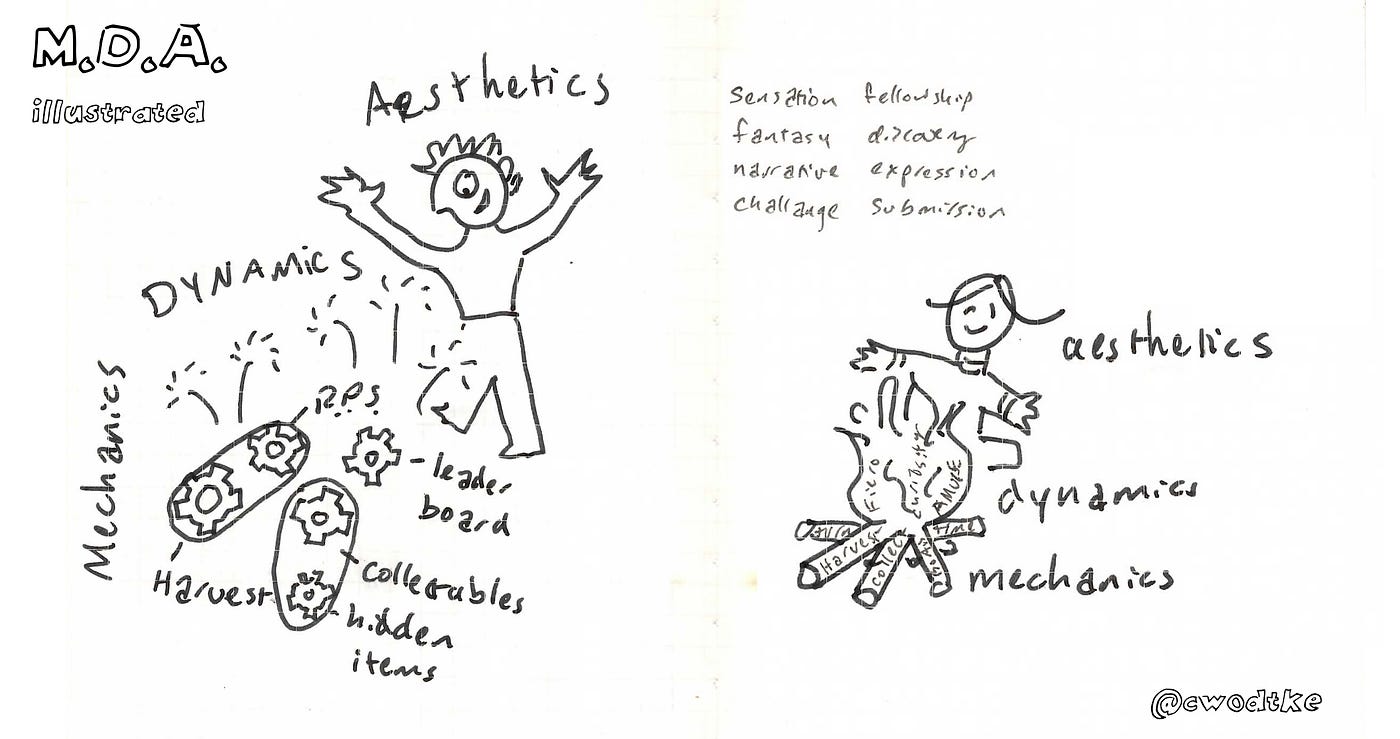 M.D.A.
illustrated
Aesthetics
DYNAMICS
Mechanics
R.P.S
leader
board
Harvest
collectables
hidden
items
Sensation fellowship
fantasy discovery
narrative expression
challange submission
aesthetics
Fiero
curiosity
AMUSE
dynamics
Harvest
collect
time
mechanics
@cwodtke